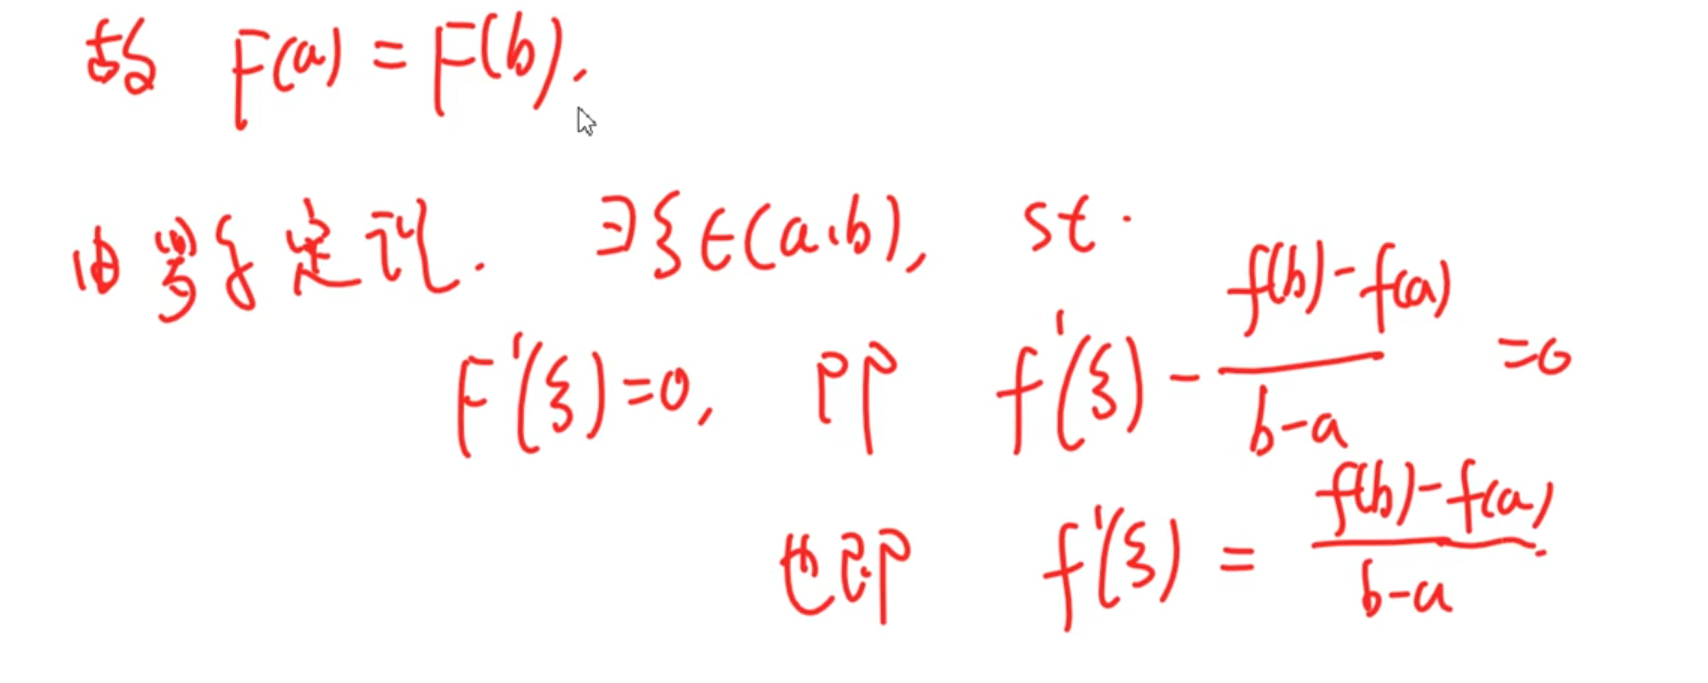 故 F(a) = F(b).
由罗尔定理. ∃ξ∈(a,b), st.
F'(ξ)=0, 即 f'(ξ) - \frac{f(b)-f(a)}{b-a} =0
也即 f'(ξ) = \frac{f(b)-f(a)}{b-a}.